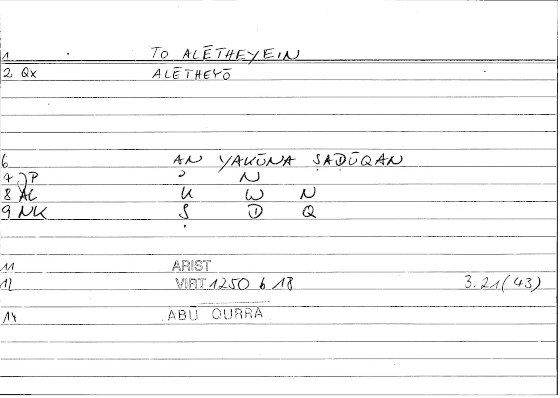 1 TO ALĒTHEYEIN
2 Qx ALĒTHEYŌ
6 AN YAKŪNA ṢADŪQAN
7 JP ʾ N
8 AL K W N
9 NK Ṣ D Q
11 ARIST
12 VIRT 1250 b 18 3.21(43)
14 ABŪ QURRA